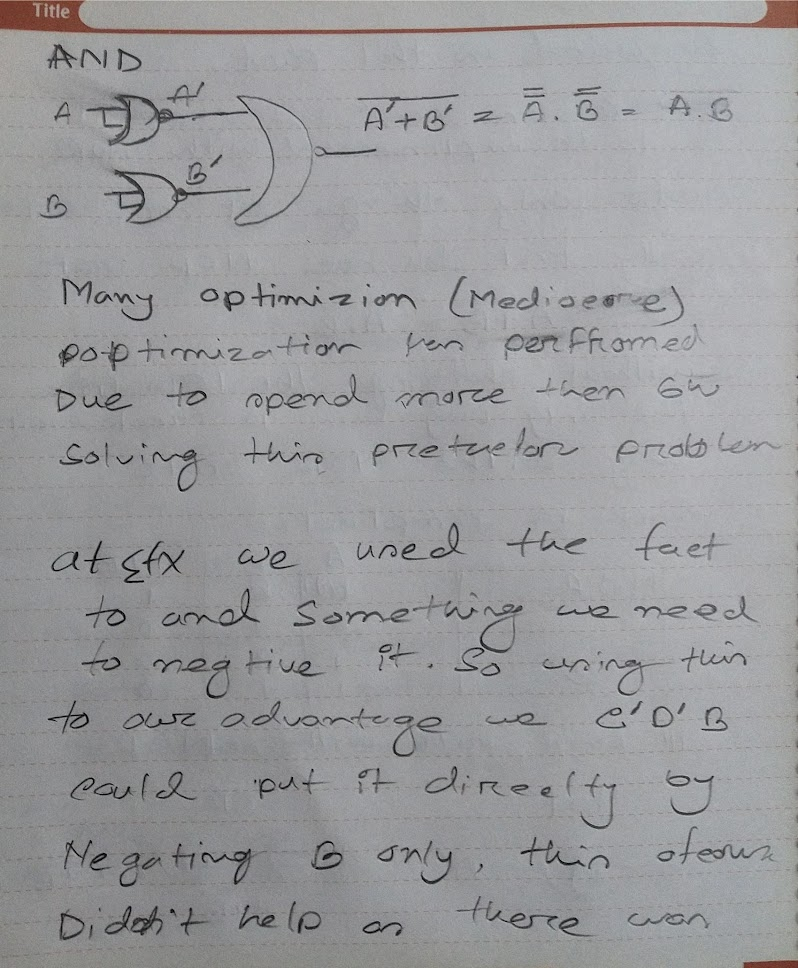 Title
AND
A A' A'+B' = A̿ . B̿ = A.B
B B'
Many optimizion (Mediocre)
poptimization perffromed
Due to spend more then 6
Solving this problem
at we used the fact
to and something we need
to negtive it. So using this
to our advantage we C'D'B
could put it direclty by
Negating B only, this
Didn't help as there was